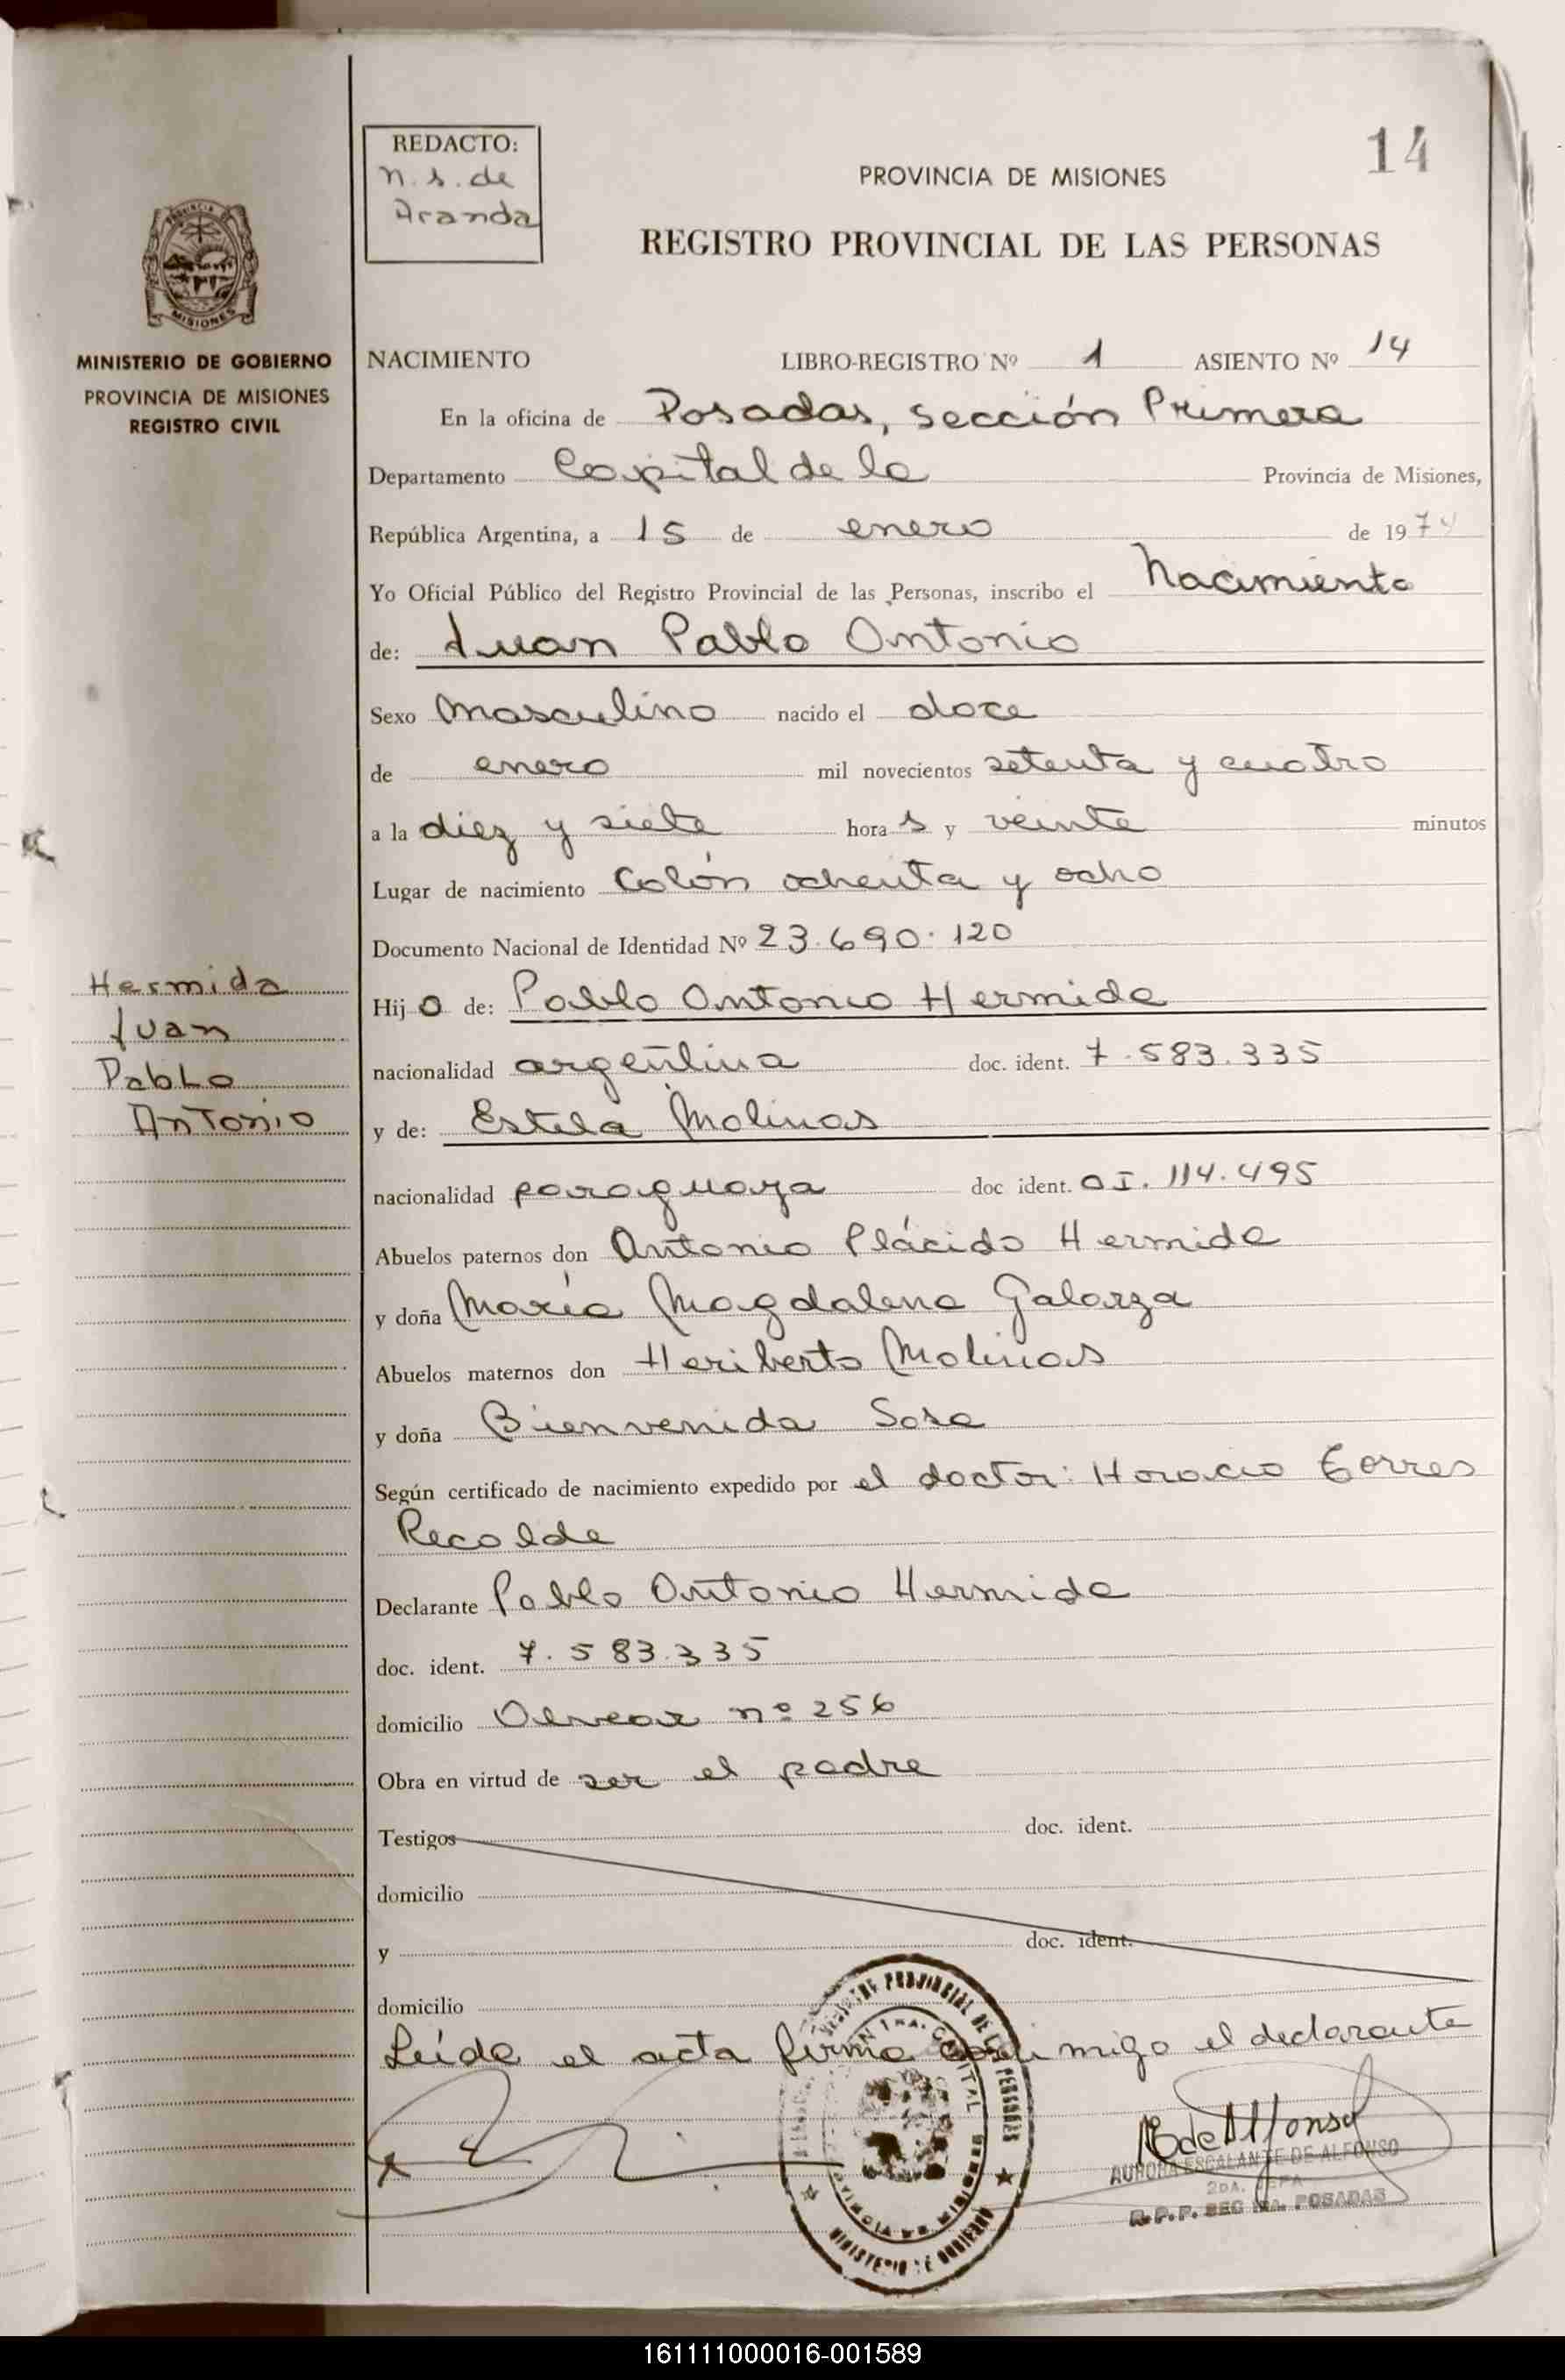 14
REDACTO:
n. s. de
Aranda
PROVINCIA DE MISIONES
REGISTRO PROVINCIAL DE LAS PERSONAS
MISIONES
MINISTERIO DE GOBIERNO
PROVINCIA DE MISIONES
REGISTRO CIVIL
NACIMIENTO LIBRO-REGISTRO Nº 1 ASIENTO Nº 14
En la oficina de Posadas, sección Primera
Departamento Capital de la Provincia de Misiones,
República Argentina, a 15 de enero de 1974
Yo Oficial Público del Registro Provincial de las Personas, inscribo el Nacimiento
de: Juan Pablo Antonio
Sexo masculino nacido el doce
de enero mil novecientos setenta y cuatro
a la diez y siete hora s y veinte minutos
Lugar de nacimiento Colón ochenta y ocho
Documento Nacional de Identidad Nº 23.690.120
Hermida
Juan
Pablo
Antonio
Hij o de: Pablo Antonio Hermida
nacionalidad argentina doc. ident. 7.583.335
y de: Estela Molinas
nacionalidad paraguaya doc ident. OI. 114.495
Abuelos paternos don Antonio Plácido Hermida
y doña María Magdalena Galarza
Abuelos maternos don Heriberto Molinas
y doña Bienvenida Sosa
Según certificado de nacimiento expedido por el doctor: Horacio Torres
Recalde
Declarante Pablo Antonio Hermida
doc. ident. 7.583.335
domicilio Alvear nº 256
Obra en virtud de ser el padre
Testigos doc. ident.
domicilio
y doc. ident.
domicilio
Leída el acta firma conmigo el declarante
REGISTRO PROVINCIAL DE LAS PERSONAS
MINISTERIO DE GOBIERNO
AEdeAlfonso
AURORA ESCALANTE DE ALFONSO
2DA. JEFA
R.P.P. SEC 1RA. POSADAS
161111000016-001589